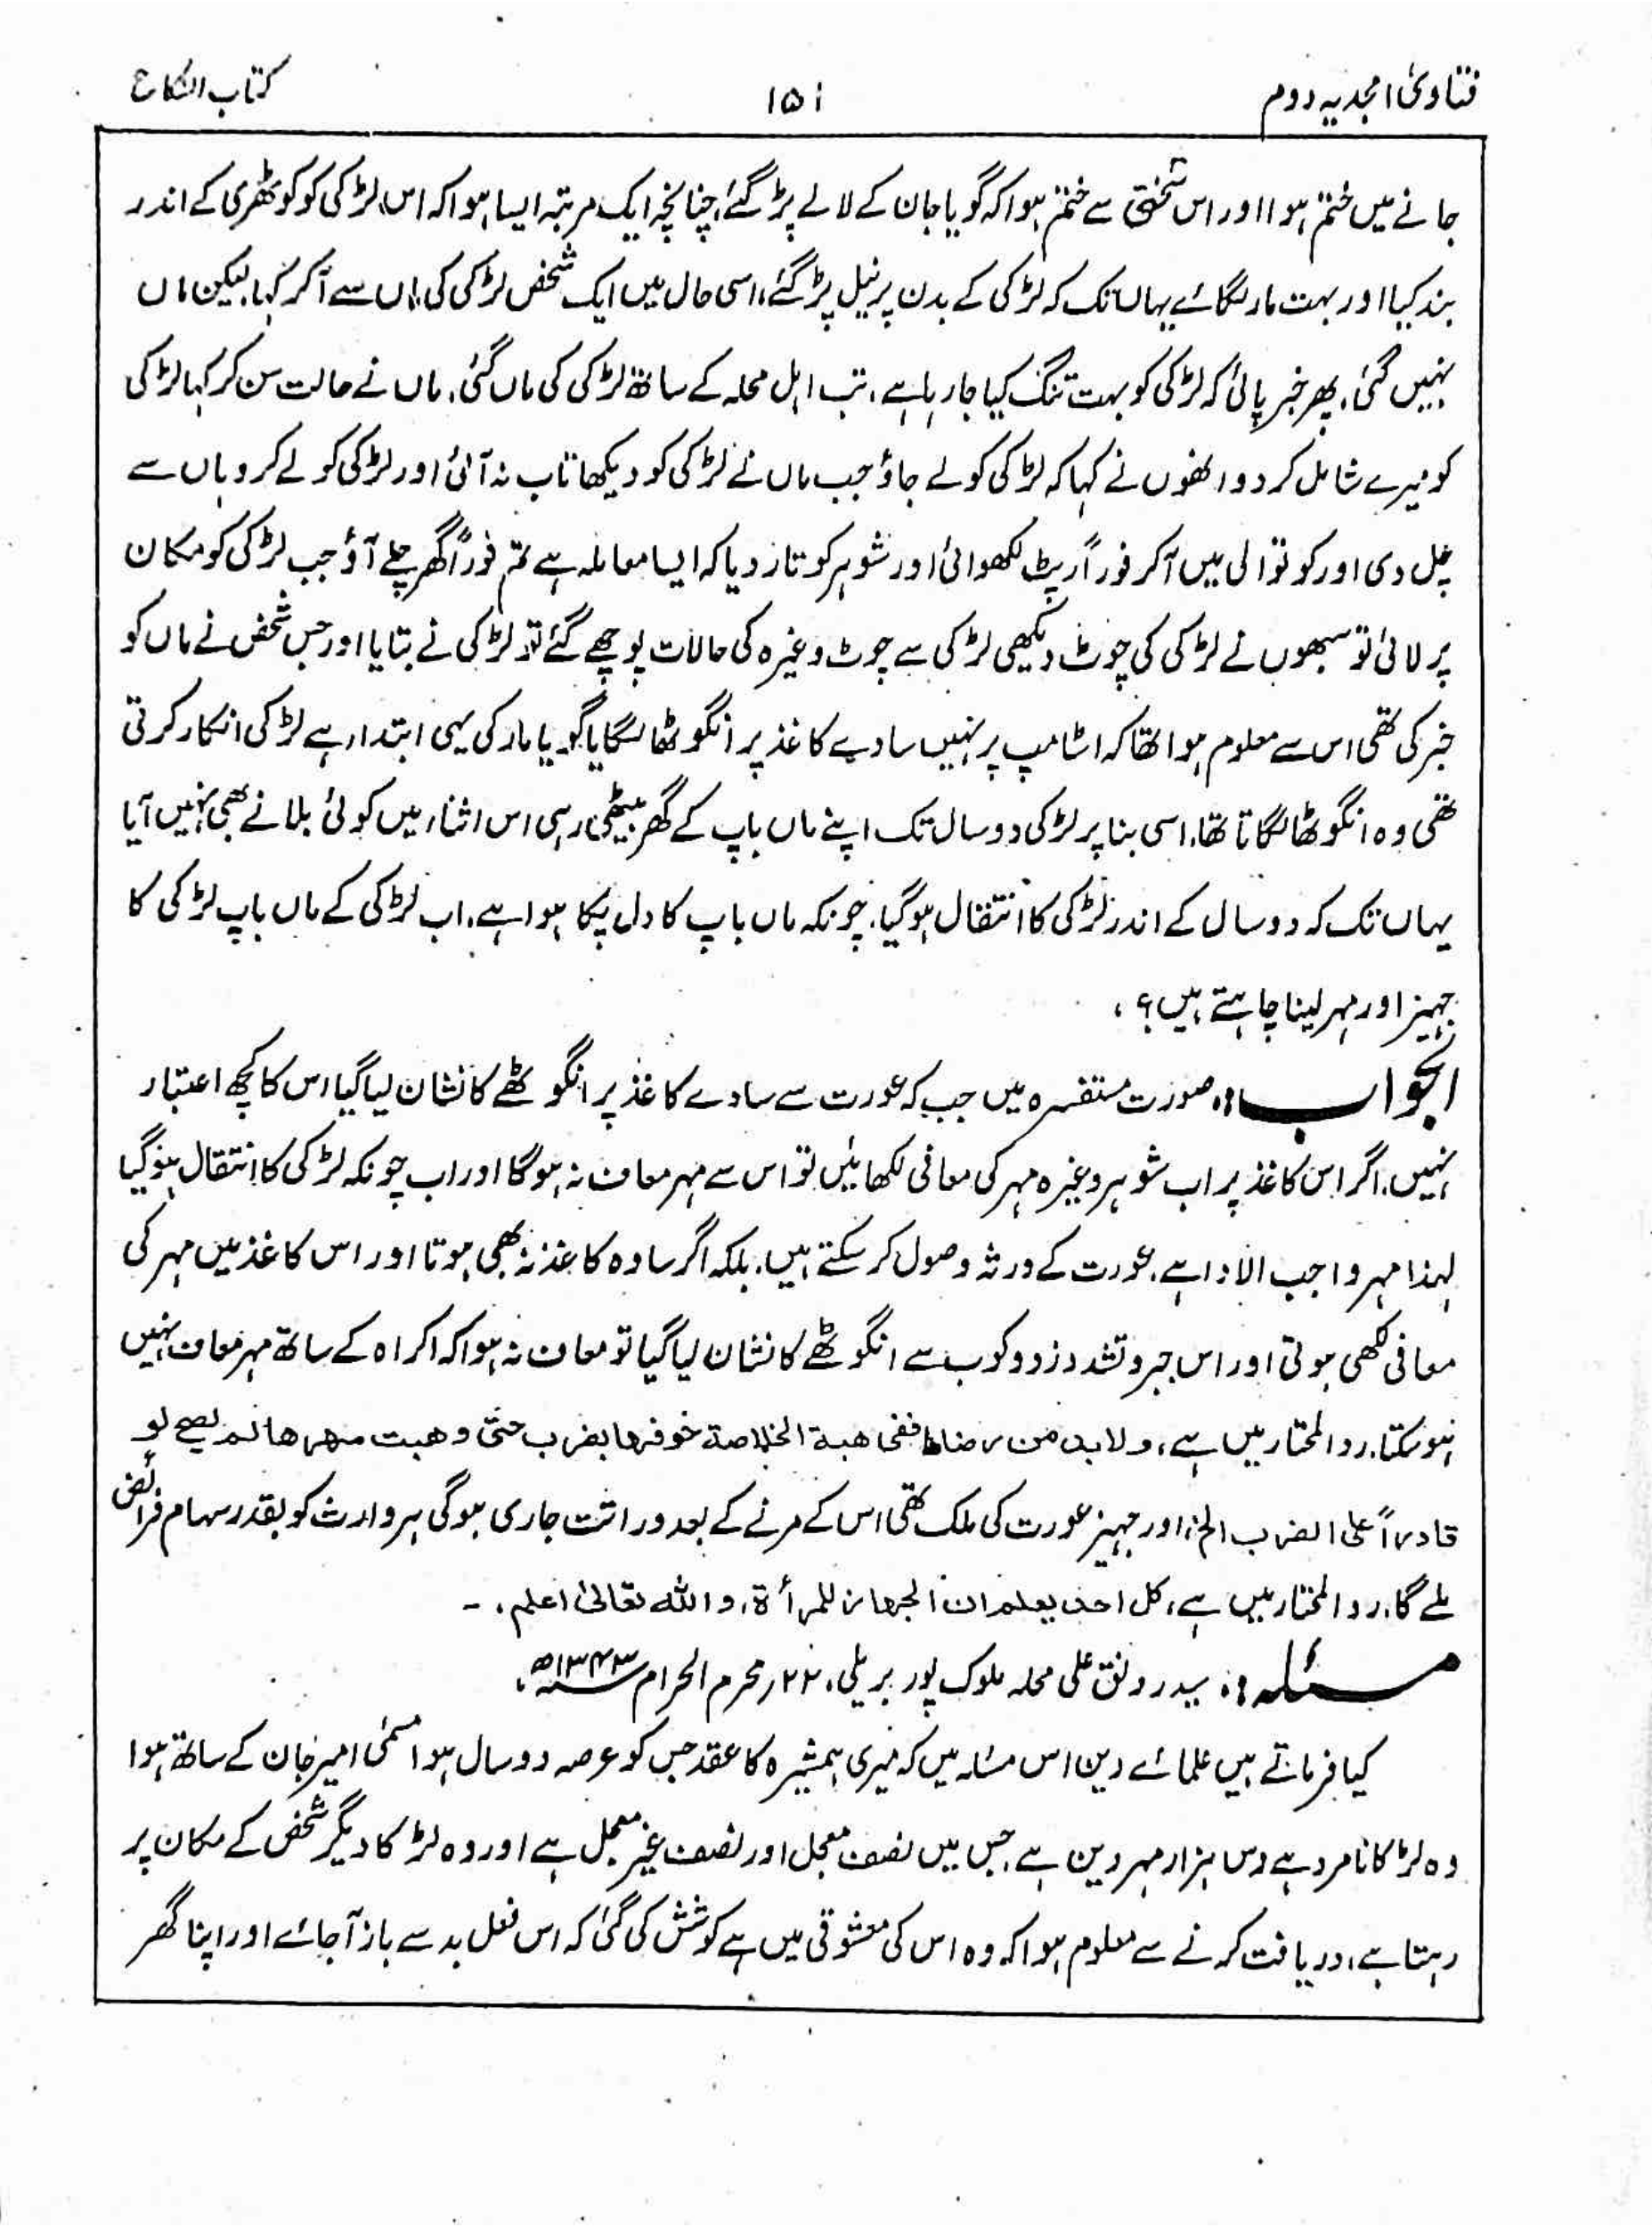 فتاویٰ امجدیہ دوم
۱۵۱
کتاب النکاح
جانے میں ختم ہوا اور اس سختی سے ختم ہوا کہ گویا جان کے لالے پڑ گئے، چنانچہ ایک مرتبہ ایسا ہوا کہ اس لڑکی کو کوٹھری کے اندر
بند کیا اور بہت مار لگائے یہاں تک کہ لڑکی کے بدن پر نیل پڑ گئے، اسی حال میں ایک شخص لڑکی کی ماں سے آکر کہا، لیکن ماں
نہیں گئی، پھر خبر پائی کہ لڑکی کو بہت تنگ کیا جا رہا ہے، تب اہل محلہ کے ساتھ لڑکی کی ماں گئی، ماں نے حالت سن کر کہا لڑکی
کو میرے شامل کردو انھوں نے کہا کہ لڑکی کو لے جاؤ جب ماں نے لڑکی کو دیکھا تاب نہ آئی اور لڑکی کو لے کر وہاں سے
چل دی اور کوتوالی میں آکر فوراً رپٹ لکھوائی اور شوہر کو تار دیا کہ ایسا معاملہ ہے تم فوراً گھر چلے آؤ جب لڑکی کو مکان
پر لائی تو سبھوں نے لڑکی کی چوٹ دیکھی لڑکی سے چوٹ وغیرہ کی حالات پوچھے گئے تو لڑکی نے بتایا اور جس شخص نے ماں کو
خبر کی تھی اس سے معلوم ہوا تھا کہ اسٹامپ پر نہیں سادے کاغذ پر انگوٹھا لگایا گویا مار کی یہی ابتدا ہے لڑکی انکار کرتی
تھی وہ انگوٹھا لگاتا تھا، اسی بنا پر لڑکی دو سال تک اپنے ماں باپ کے گھر بیٹھی رہی اس اثناء میں کوئی بلانے بھی نہیں آیا
یہاں تک کہ دو سال کے اندر لڑکی کا انتقال ہوگیا، چونکہ ماں باپ کا دل پکا ہوا ہے، اب لڑکی کے ماں باپ لڑکی کا
جہیز اور مہر لینا چاہتے ہیں؟،
الجواب :۔ صورت مستفسرہ میں جب کہ عورت سے سادے کاغذ پر انگوٹھے کا نشان لیا گیا اس کا کچھ اعتبار
نہیں، اگر اس کاغذ پر اب شوہر وغیرہ مہر کی معافی لکھائیں تو اس سے مہر معاف نہ ہوگا اور اب چونکہ لڑکی کا انتقال ہوگیا
لہذا مہر واجب الادا ہے، عورت کے ورثہ وصول کر سکتے ہیں، بلکہ اگر سادہ کاغذ نہ بھی ہوتا اور اس کاغذ میں مہر کی
معافی لکھی ہوتی اور اس جبر و تشدد زد و کوب سے انگوٹھے کا نشان لیا گیا تو معاف نہ ہوا کہ اکراہ کے ساتھ مہر معاف نہیں
ہو سکتا، رد المحتار میں ہے، ولابد من رضاها ففی هبة الخلاصة خوفها بضرب حتی وهبت مهرها لم یصح لو
قادراً علی الضرب الخ، اور جہیز عورت کی ملک تھی اس کے مرنے کے بعد وراثت جاری ہوگی ہر وارث کو بقدر سہام فرائض
ملے گا، رد المحتار میں ہے، کل احد یعلم ان الجهاز للمرأة، واللہ تعالیٰ اعلم، -
مسئلہ :۔ سید رونق علی محلہ ملوک پور بریلی، ۲۲ رمحرم الحرام ۱۳۴۳ھ،
کیا فرماتے ہیں علمائے دین اس مسئلہ میں کہ میری ہمشیرہ کا عقد جس کو عرصہ دو سال ہوا مسمٰی امیر جان کے ساتھ ہوا
وہ لڑکا نامرد ہے دس ہزار مہر دین ہے جس میں نصف معجل اور نصف غیر معجل ہے اور وہ لڑکا دیگر شخص کے مکان پر
رہتا ہے، دریافت کرنے سے معلوم ہوا کہ وہ اس کی معشوقی میں ہے کوشش کی گئی کہ اس فعل بد سے باز آجائے اور اپنا گھر